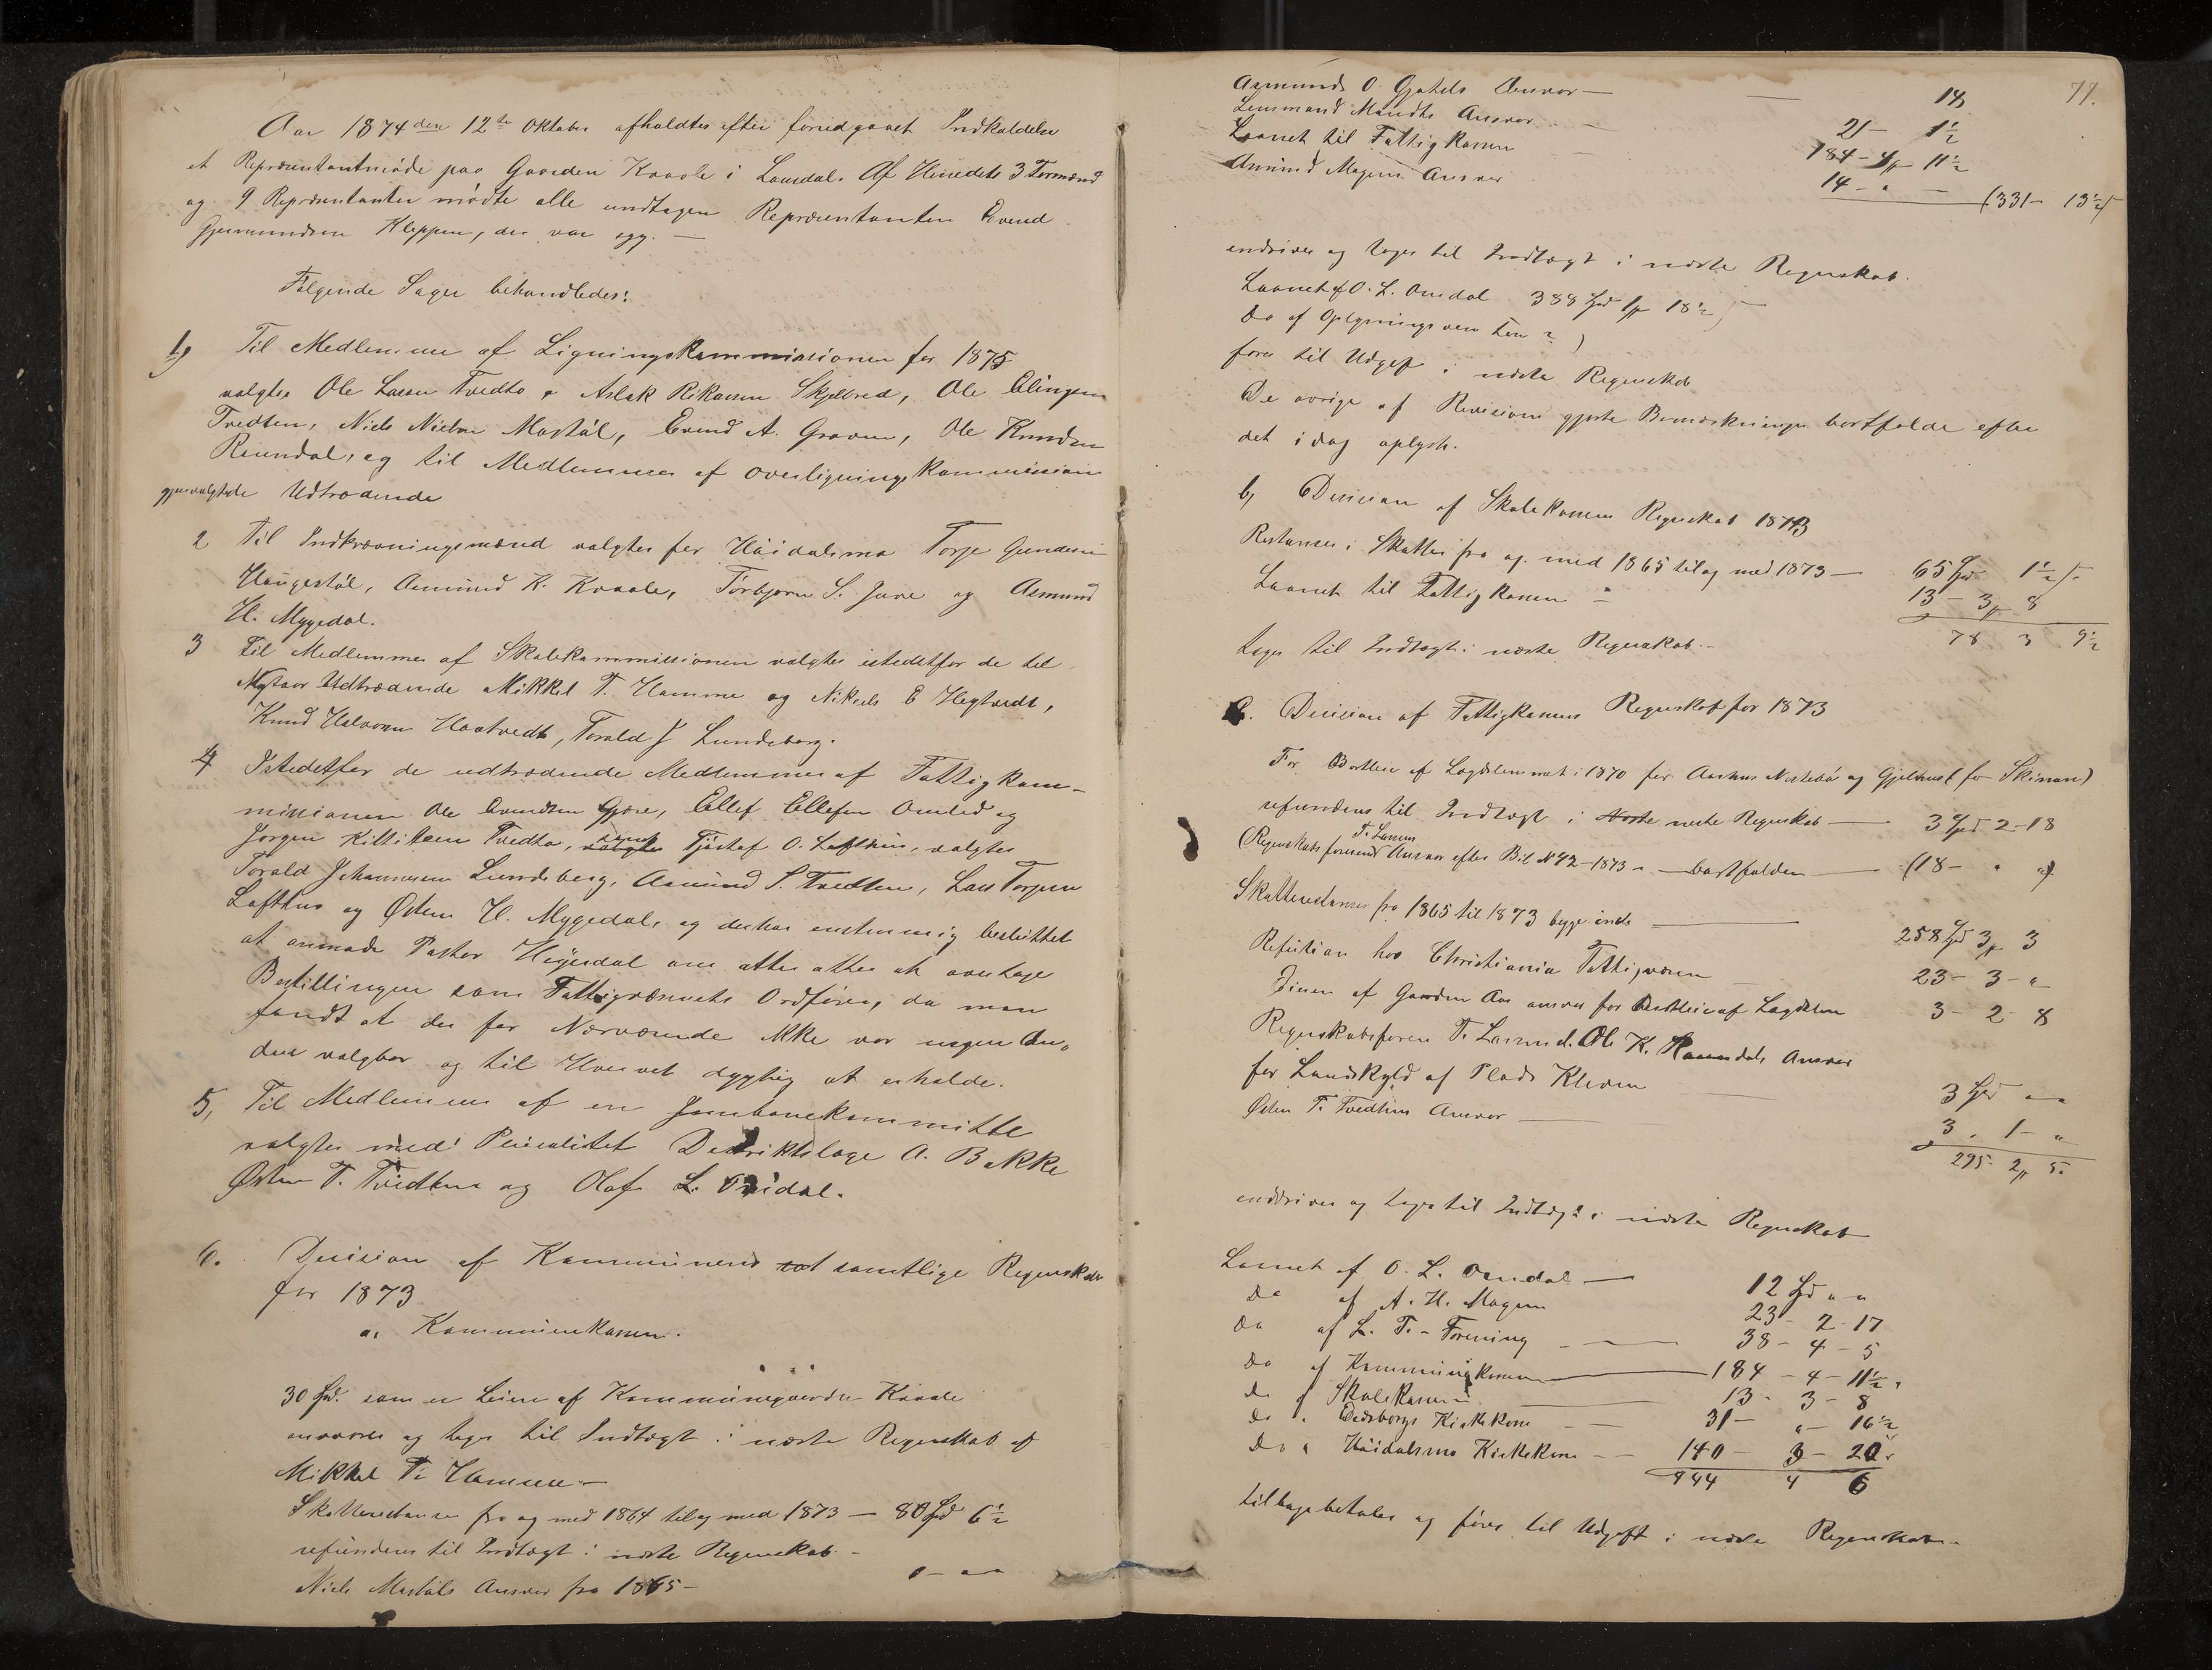 Aar 1874 den 12te Oktober afholdtes efter forudgaaet Indkaldelse
et Repræsentantmøde paa Gaarden Kraale i Laurdal. Af Herredets 3 Formænd
og 9 Repræsentanter mødte alle undtagen Repræsentanten Evend
Gjermundsen Kleppen, der var syg. —
Følgende Sager behandledes:
1, Til Medlemme af Ligningskommissionen for 1875
valgtes Ole Larsen Tvedto, Aslak Rikarsen Skjelbred, Ole Elingsen
Tvedten, Niels Nielsen Mostøl, Evend A. Groven, Ole Knudsen
Roundal, og til Medlemmer af Overligningskommission
gjenvalgtede Udtrædende
2 Til Indkrævningsmænd valgtes for Høidalsmo Torje Gundersen
Haugestøl, Asmund K. Kraale, Torbjørn S. Juve og Asmund
H. Mygedal.
3 Til Medlemmer af Skolekommissionen valgtes istedetfor de til
Nytaar Udtrædende Mikkel T. Hamme og Nikuls E Hegtvedt,
Knud Halvorsen Haatvedt, Torald J Lundeberg.
4 Istedetfor de udtrædende Medlemmer af Fattigkom-
missionen Ole Evendsen Gjøre, Ellef Ellefsen Omlid og
Jørgen Kittilsen Tvedto, samt Tjøstof O. Lofthus, valgtes
Torald Johannesen Lundeberg, Asmund S. Tvedten, Lars Torjusen
Lofthus og Østen H. Mygedal, og der har enstemmig besluttet
at anmode Pastor Høyesdal om atter at overtage
Bestillingen som Fattigvæsenets Ordfører, da man
fandt at der for Nærværende ikke var nogen An-
den valgbar og til Hvervet dygtig at erholde.
5, Til Medlemmer af en Jernbanekommitte
valgtes med Pluralitet Distriktslæge A. Bakke
Østen T. Tvedten og Olaf L. Omdal.
6. Decision af Kommunens samtlige Regnskaber
for 1873
a, Kommunekassen.
30 Spd. som er Leien af Kommunegaarden Kraale
ansvares og tages til Indtægt i næste Regnskab af
Mikkel T. Hamme —
Skatterestanser fra og med 1864 til og med 1873 — 80 Spd 6½
refunderes til Indtægt i næste Regnskab. —
Niels Mostøls Ansvar fra 1865 —
77.
Asmund O. Ansvar — 14
Lensmand Mandts Ansvar — 21 — 1½
Laanet til Fattigkassen 184 — 4 11½
Asmund Mogens Ansvar 14 — " — (331 — 13½)
inddrives og tages til Indtægt i næste Regnskab.
Laanet af O. L. Omdal 388 Spd 1 18½
Do af Oplysningsvæsenet
føres til Udgift i næste Regnskab
De øvrige af Revisionen gjorte Bemærkninger bortfalde efter
det idag oplyste.
b, Decision af Skolekassens Regnskab 1873
Restanser i Skatter fra og med 1865 til og med 1873 — 65 Spd 1½
Laanet til Fattigkassen — 13 — 3 8
78 3 9½
tages til Indtægt i næste Regnskab. —
c. Decision af Fattigkassens Regnskab for 1873
For Bortleie af Lægdslemmet i 1870 for Aarhus Nestebø og Gjelhus (for Skinan)
refunderes til Indtægt i næste Regnskab — 3 Spd 2 - 18
(Regnskabsføreren T. Larsens Ansvar efter Bil. N 42 - 1873 — bortfalder — (18 — " ")
Skatterestanser fra 1865 til 1873 begge inds — 258 Spd 3 3
Refusion hos Christiania Fattigvæsen 23 — 3 — "
Eieren af Gaarden Aas ansvar for Bortleie af Lægdslem 3 — 2 — 8
Regnskabsfører T. Larsen d. Ole K. Roundals Ansvar
for Landskyld af Plads Kleven — 3 Spd " "
Østen T. Tvedtens Ansvar — 3 . 1 — "
295 — 2 5.
inddrives og tages til Indtægt i næste Regnskab
Laanet af O. L. Omdal — 12 Spd " "
Do af A. H. Mogen 23 — 2 — 17
Do af L. T. — Forening — 38 — 4 — 5
Do af Kommunekassen — 184 — 4 — 11½
Do af Skolekassen — 13 — 3 — 8
Do " Eidsborgs Kirkekasse — 31 — " — 16½
Do " Høidalsmo Kirkekasse — 140 — 3 — 20
444 4 6
tilbagebetales og føres til Udgift i næste Regnskab. —